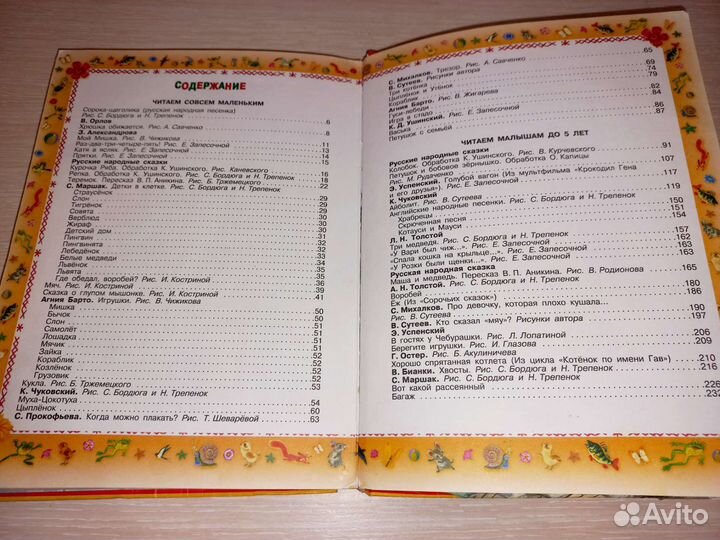 СОДЕРЖАНИЕ
ЧИТАЕМ СОВСЕМ МАЛЕНЬКИМ
Сорока-щеголиха (русская народная песенка)
Рис. С. Бордюга и Н. Трепенок ...6
В. Орлов
Хрюшка обижается. Рис. А. Савченко ...8
З. Александрова
Мой Мишка. Рис. В. Чижикова ...11
Раз-два-три-четыре-пять! Рис. Е. Запесочной ...13
Катя в яслях. Рис. Е. Запесочной ...14
Прятки. Рис. Е. Запесочной ...15
Русские народные сказки
Курочка Ряба. Обработка К. Ушинского. Рис. Каневского ...16
Репка. Обработка К. Ушинского. Рис. С. Бордюга и Н. Трепенок ...18
Теремок. Пересказ В. П. Аникина. Рис. Б. Тржемецкого ...22
С. Маршак. Детки в клетке. Рис. С. Бордюга и Н. Трепенок ...29
Страусёнок ...29
Слон ...29
Тигрёнок ...29
Совята ...29
Верблюд
Жираф
Детский дом
Пингвин
Пингвинята
Лебедёнок
Белые медведи
Львёнок
Львята
Где обедал, воробей? Рис. И. Костриной ...35
Мяч. Рис. И. Костриной
Сказка о глупом мышонке. Рис. И. Костриной ...41
Агния Барто. Игрушки. Рис. В. Чижикова
Мишка ...50
Бычок ...50
Слон ...51
Самолёт ...51
Лошадка ...51
Мячик ...51
Зайка ...52
Кораблик ...52
Козлёнок ...52
Грузовик ...52
Кукла. Рис. Б. Тржемецкого ...53
К. Чуковский. Рис. С. Бордюга и Н. Трепенок
Муха-Цокотуха ...54
Цыплёнок ...60
С. Прокофьева. Когда можно плакать? Рис. Т. Шеварёвой ...63
...65
С. Михалков. Трезор. Рис. А. Савченко ...69
В. Сутеев. Рисунки автора
Три котёнка ...74
Цыплёнок и Утёнок ...79
Кораблик
Агния Барто. Рис. В. Жигарева
Гуси-лебеди ...82
Игра в стадо ...84
К. Д. Ушинский. Рис. Е. Запесочной
Васька ...86
Петушок с семьёй ...87
ЧИТАЕМ МАЛЫШАМ ДО 5 ЛЕТ
Русские народные сказки
Колобок. Обработка К. Ушинского. Рис. В. Курчевского ...91
Петушок и бобовое зёрнышко. Обработка О. Капицы
Рис. М. Рудаченко ...107
Э. Успенский. Голубой вагон (Из мультфильма «Крокодил Гена
и его друзья»). Рис. Е. Запесочной ...117
К. Чуковский
Айболит. Рис. В. Сутеева ...119
Английские народные песенки. Рис. С. Бордюга и Н. Трепенок
Храбрецы ...150
Скрюченная песня ...151
Котауси и Мауси ...154
Л. Н. Толстой
Три медведя. Рис. С. Бордюга и Н. Трепенок ...157
«У Вари был чиж...». Рис. Е. Запесочной ...162
«Спала кошка на крыльце...». Рис. Е. Запесочной ...163
«У Розки были щенки...». Рис. Е. Запесочной ...163
Русская народная сказка
Маша и медведь. Пересказ В. П. Аникина. Рис. В. Родионова ...165
А. Н. Толстой. Рис. С. Бордюга и Н. Трепенок
Воробей ...180
Ёж (Из «Сорочьих сказок») ...186
С. Михалков. Про девочку, которая плохо кушала...
Рис. В. Сутеева ...190
В. Сутеев. Кто сказал «мяу»? Рисунки автора ...197
Э. Успенский
В гостях у Чебурашки. Рис. Л. Лопатиной ...207
Берегите игрушки. Рис. И. Глазова ...209
Г. Остер. Рис. Б. Акулиничева
Хорошо спрятанная котлета (Из цикла «Котёнок по имени Гав») ...210
В. Бианки. Хвосты. Рис. С. Бордюга и Н. Трепенок ...216
С. Маршак. Рис. С. Бордюга и Н. Трепенок
Вот какой рассеянный ...226
Багаж ...232
Avito